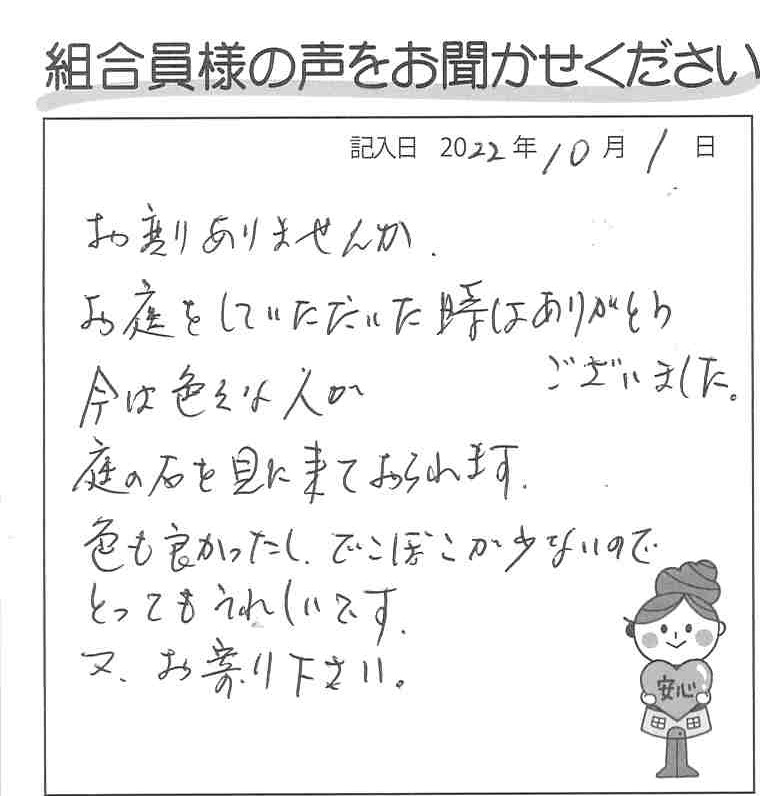 組合員様の声をお聞かせください
記入日 2022年10月1日
お変りありませんか.
お庭をしていただいた時はありがとう
ございました。
今は色々な人が
庭の石を見に来ておられます.
色も良かったし、でこぼこが少ないので
とってもうれしいです.
又、お寄り下さい。
安心